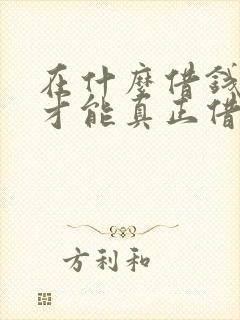 在什麼借錢
才能真正借
方利和